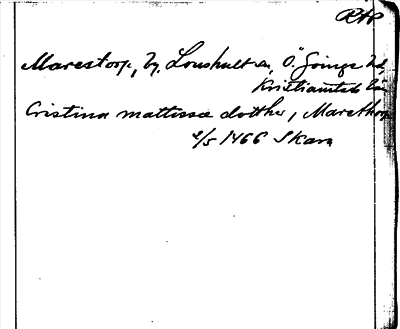 RAP
Marestorp, by, Lönshult sn, Ö. Göinge hd,
Kristianstads län
Cristina mattissa dotther, Marethorp
2/5 1466 Skara